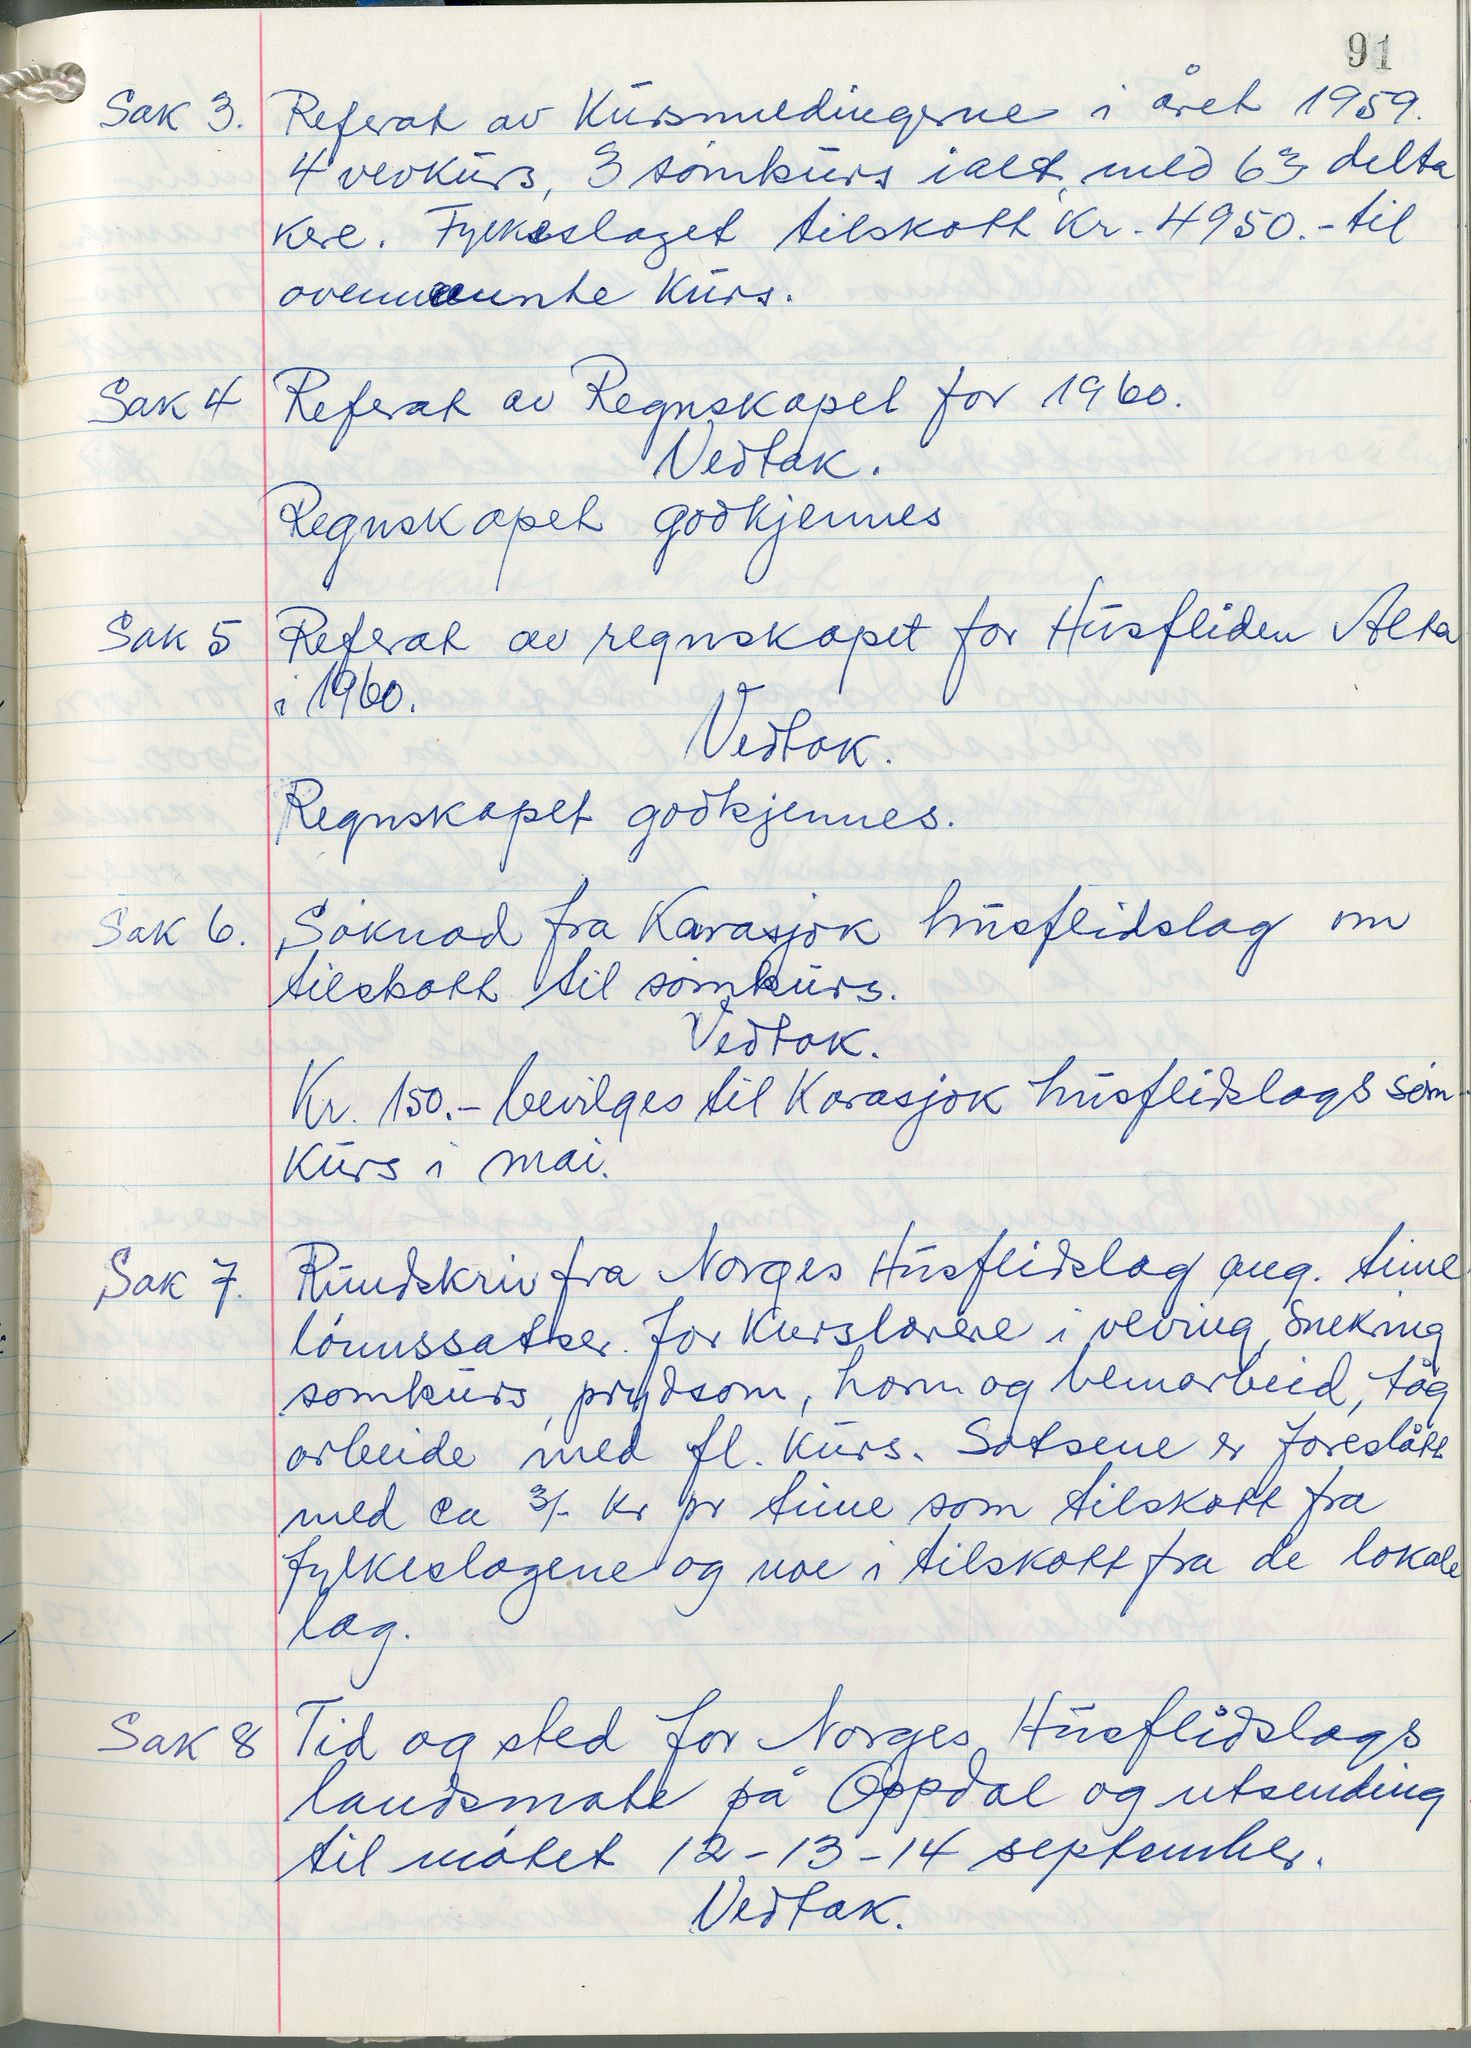 91
Sak 3. Referat av Kursmeldingerne i året 1959.
4 vevkurs, 3 sømkurs ialt, med 63 delta
kere. Fylkeslaget tilskott Kr. 4950.- til
ovennevnte Kurs.
Sak 4 Referat av Regnskapet for 1960.
Vedtak.
Regnskapet godkjennes
Sak 5 Referat av regnskapet for Husfliden Alta
i 1960.
Vedtak.
Regnskapet godkjennes.
Sak 6. Søknad fra Karasjok husflidslag om
tilskott til sømkurs.
Vedtak.
Kr. 150.- bevilges til Karasjok husflidslags søm-
Kurs i mai.
Sak 7. Rundskriv fra Norges Husflidslag ang. time
lønnssatser for Kurslærere i veving, Snekring
somkurs, prydsom, horn og benarbeid, tåg
arbeide med fl. Kurs. Satsene er foreslått
med ca 3/- Kr pr time som tilskott fra
fylkeslagene og noe i tilskott fra de lokale
lag.
Sak 8 Tid og sted for Norges Husflidslags
landsmøte på Oppdal og utsending
til møtet 12-13-14 september.
Vedtak.